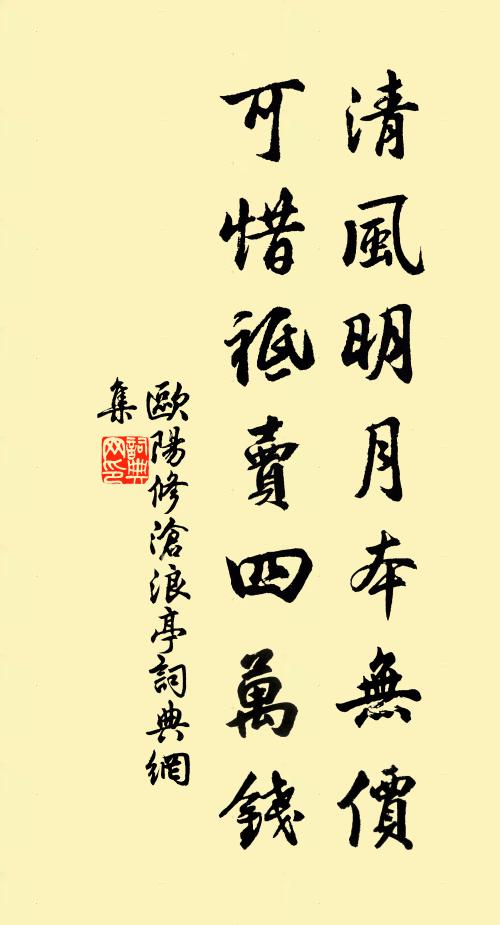 清風明月本無價
可惜祗賣四萬錢
歐陽修滄浪亭詞典網
集
詞典
网印